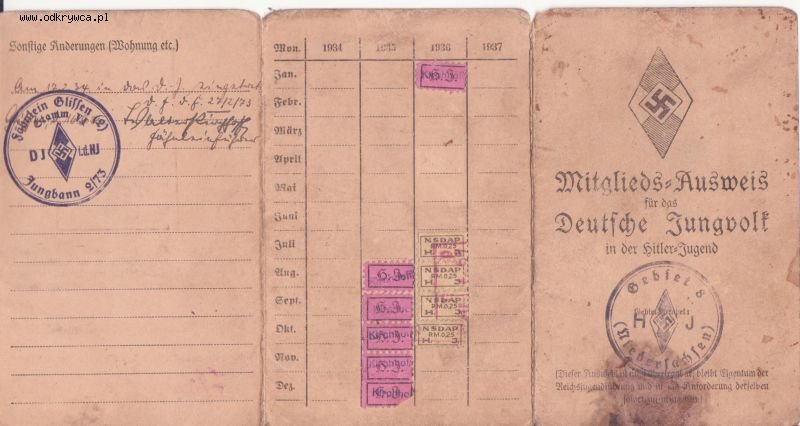 www.odkrywca.pl
Sonstige Änderungen (Wohnung etc.)
Am 12.2.34 in das D.J.
D.J. 2/73
Fähnleinführer
Fähnlein Glissen (2)
Stamm
DJ i.d. HJ
Jungbann 2/73
Mon. 1934 1935 1936 1937
Jan.
H. J.
Febr.
März
April
Mai
Juni
Juli
NSDAP
RM.0,25
H. J.
Aug.
H. J.
NSDAP
RM.0,25
H. J.
Sept.
H. J.
NSDAP
RM.0,25
H. J.
Okt.
H. J.
Kirchholt
NSDAP
RM.0,25
H. J.
Nov.
H. J.
Dez.
H. J.
Kirchholt
Mitglieds-Ausweis
für das
Deutsche Jungvolk
in der Hitler-Jugend
Gebiet 8
H J
(Niedersachsen)
(Dieser Ausweis ist nicht übertragbar, bleibt Eigentum der
Reichsjugendführung und ist auf Anforderung derselben
sofort